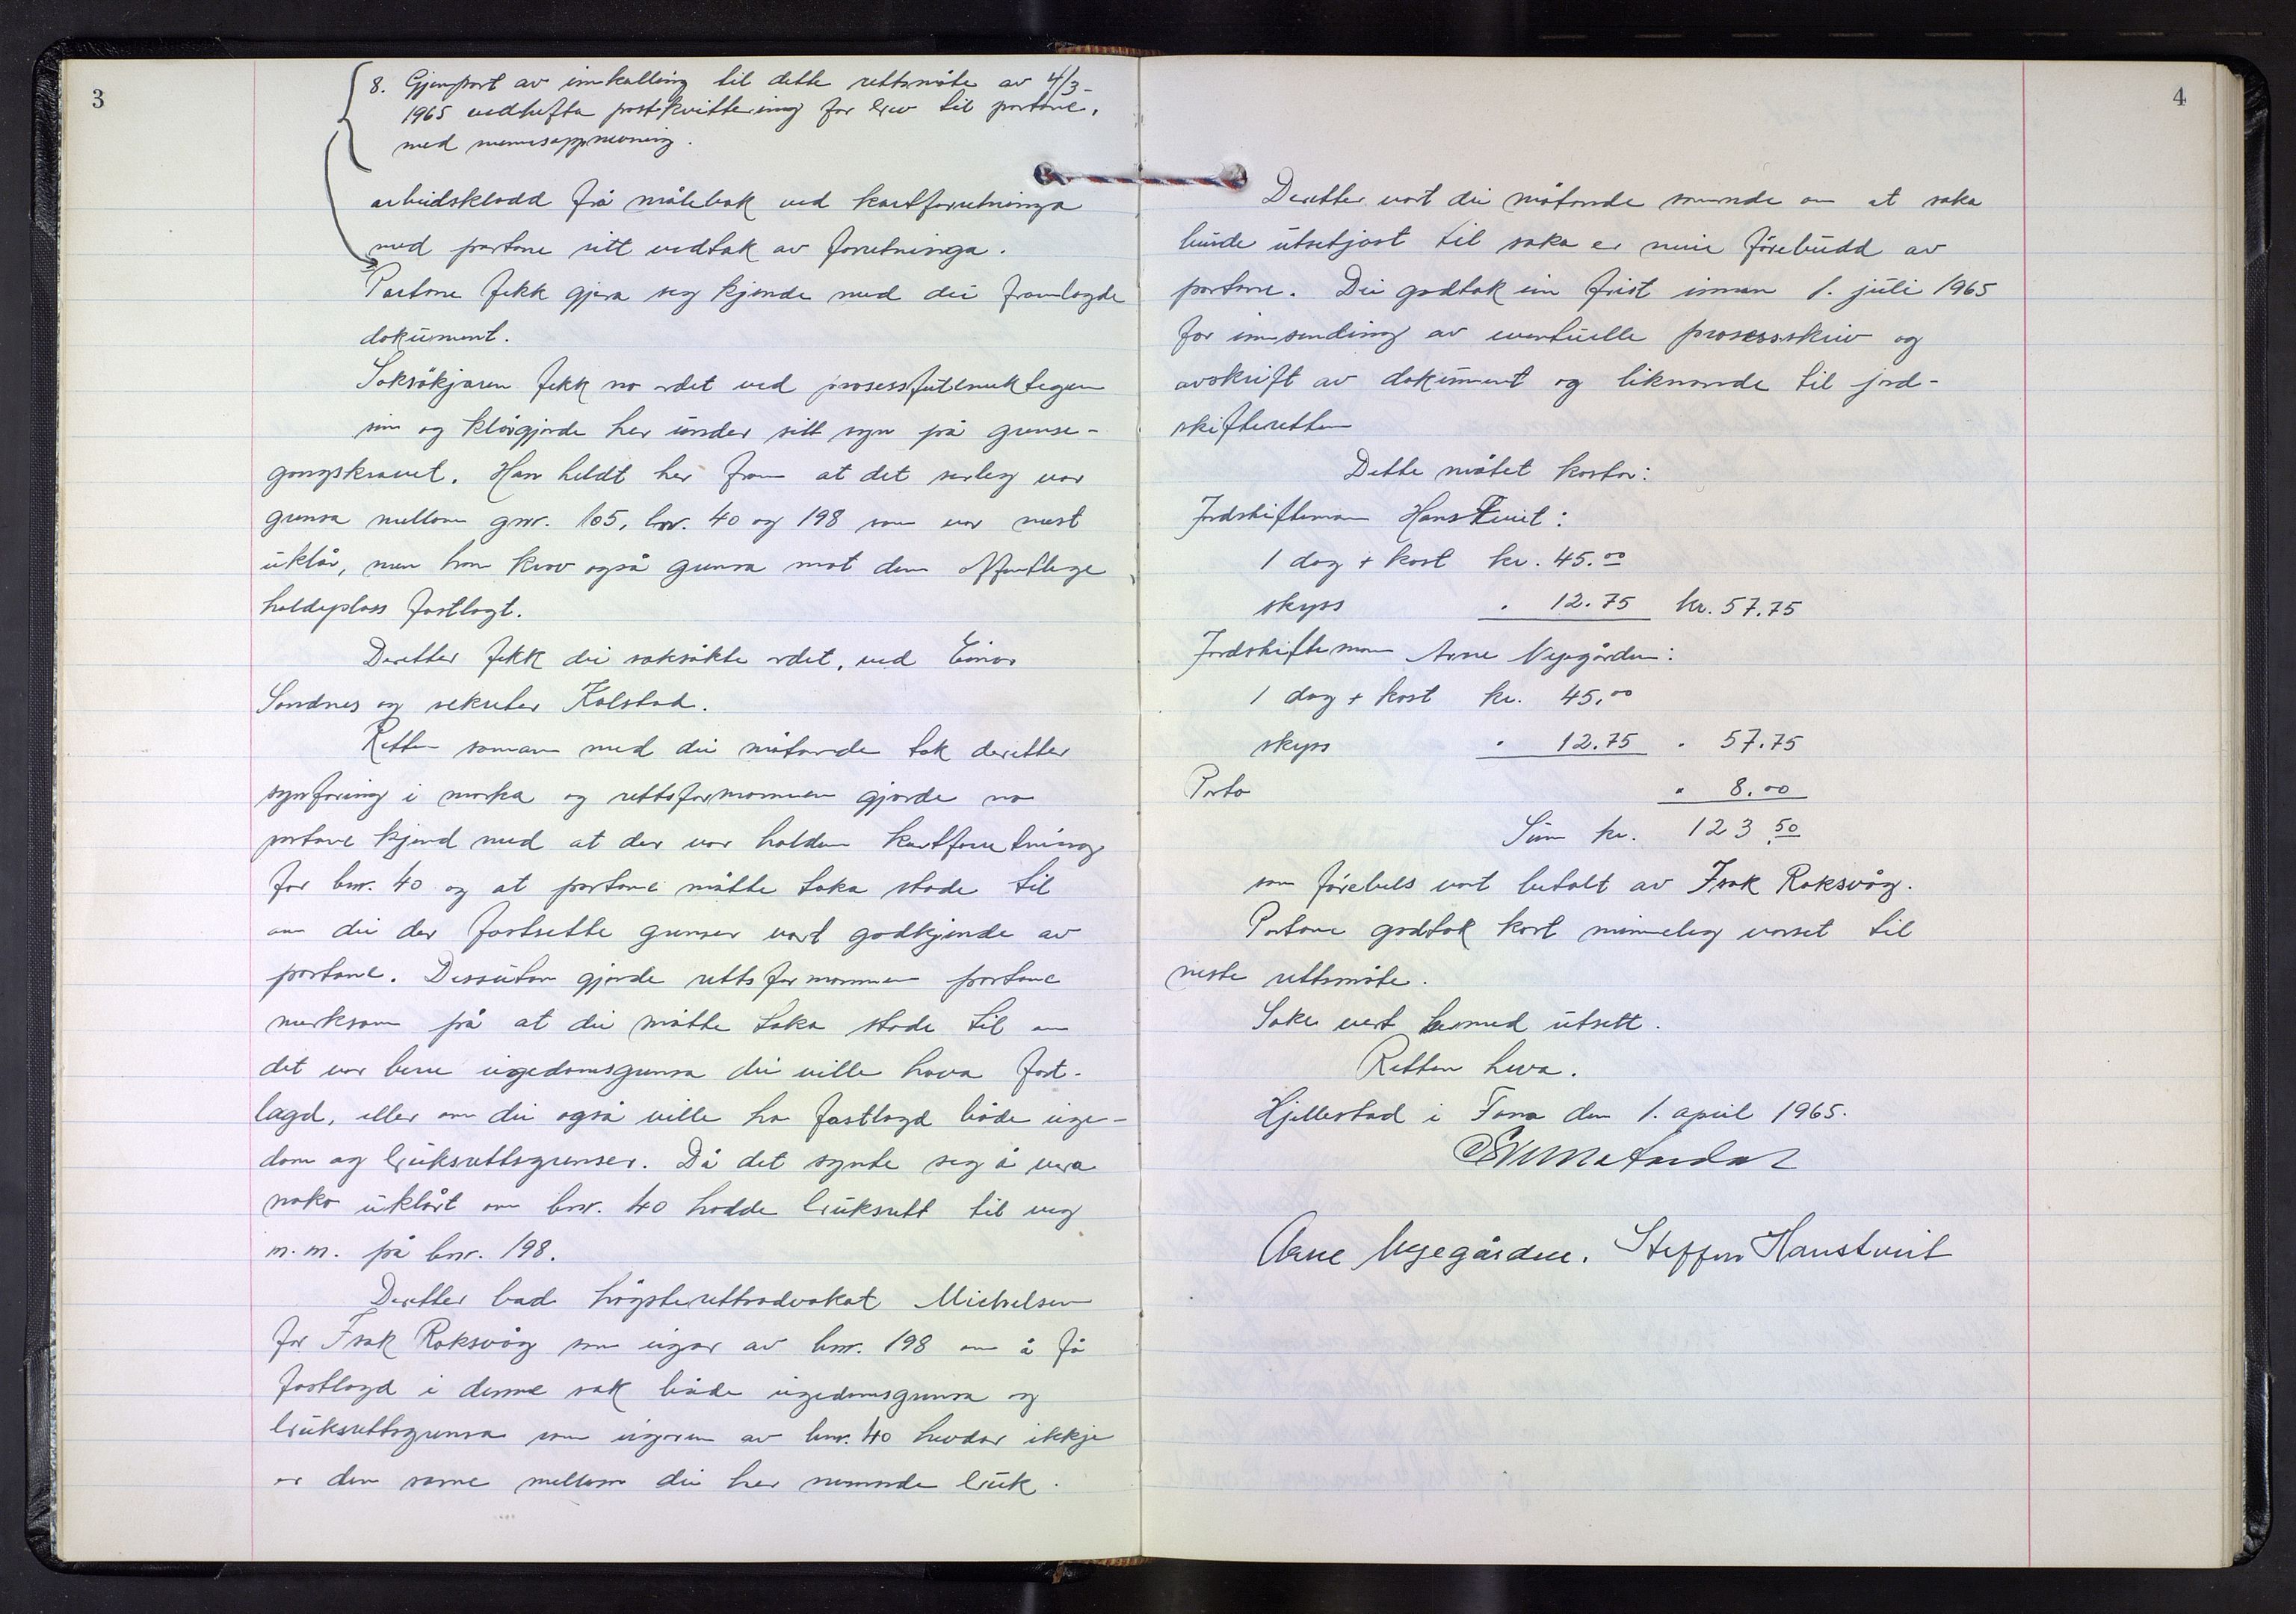 3
8. Gjenpart av innkalling til dette rettsmöte av 4/3-
1965 vedhefta postkvittering for brev til partane,
med mennsoppnevning.
arbeidskladd frå målebok ved kartforretninga
med partane sitt vedtak av forretninga.
Partane fekk gjera seg kjende med dei framlagde
dokument.
Saksökjaren fekk no ordet ved prosessfullmektigen
sin og klårgjorde her under sitt syn på grense-
gangskravet. Han heldt her fram at det serleg var
grensa mellom gnr. 105, bnr. 40 og 198 som var mest
uklår, men han krov også grensa mot den offentlege
haldeplass fastlagt.
Deretter fekk dei saksökte ordet, ved Einar
Sandnes og sekretær Kolstad.
Retten saman med dei mötande tok deretter
synfaring i marka og rettsformannen gjorde no
partane kjend med at der var halden kartforretning
for bnr. 40 og at partane måtte taka stode til
om dei der fastsette grenser vart godkjende av
partane. Dessutan gjorde rettsformannen partane
merksam på at dei måtte taka stode til om
det var berre eigedomsgrensa dei ville hava fast-
lagd, eller om dei også ville ha fastlagd både eige-
dom og bruksrettsgrenser. Då det synte seg å vera
noko uklårt om bnr. 40 hadde bruksrett til veg
m.m. på bnr. 198.
Deretter bad högsterettsadvokat Michelsen
for Isak Roksvåg som eigar av bnr. 198 om å få
fastlagd i denne sak både eigedomsgrensa og
bruksrettsgrensa som eigaren av bnr. 40 hevdar ikkje
er den same mellom dei her nemnde bruk.
4
Deretter vart dei mötande samde om at saka
burde utsetjast til saka er meir förebudd av
partane. Dei godtok ein frist innan 1. juli 1965
for innsending av eventuelle prosesskriv og
avskrift av dokument og liknande til jord-
skifteretten
Dette mötet kostar:
Jordskiftemann Hanstveit:
1 dag + kost kr. 45.00
skyss " 12.75 kr. 57.75
Jordskiftemann Arne Nyegården:
1 dag + kost kr. 45,00
skyss " 12.75 " 57.75
Porto " 8.00
Sum kr. 123.50
som förebels vart betalt av Isak Roksvåg.
Partane godtok kort minneleg varsel til
neste rettsmöte.
Saka vert hermed utsett.
Retten heva.
Hjellestad i Fana den 1. april 1965.
Arne Nyegården. Steffen Hanstveit